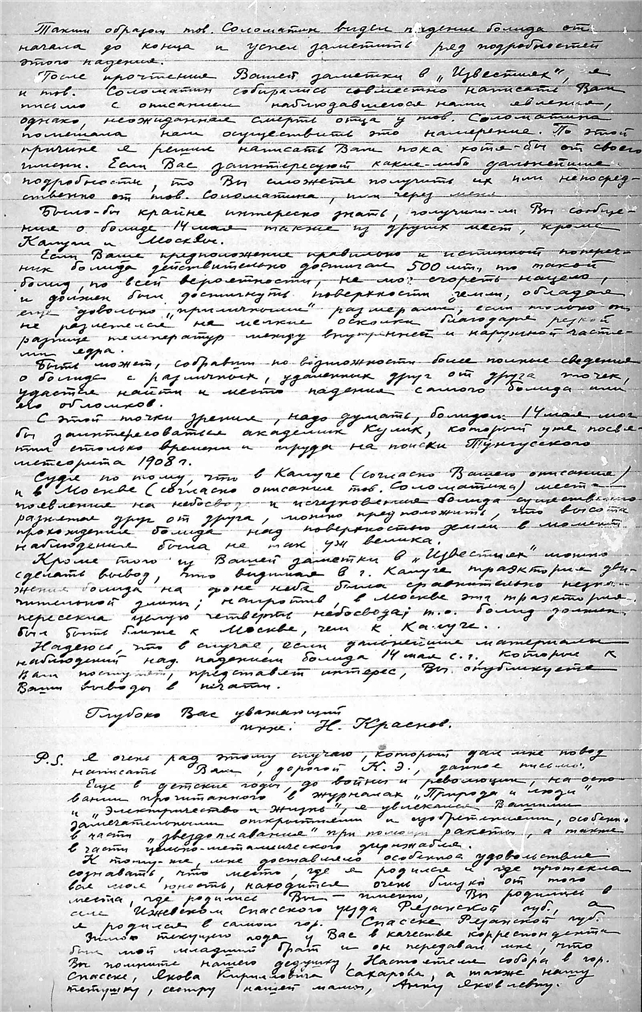 Таким образом тов. Соломатин видел падение болида от
начала до конца и успел заметить ряд подробностей
этого падения.
После прочтения Вашей заметки в „Известиях“, я
и тов. Соломатин собирались совместно написать Вам
письмо с описанием наблюдавшегося нами явления,
однако, неожиданная смерть отца у тов. Соломатина
помешала нам осуществить это намерение. По этой
причине я решил написать Вам пока хотя-бы от своего
имени. Если Вас заинтересуют какие-либо дальнейшие
подробности, то Вы сможете получить их или непосред-
ственно от тов. Соломатина, или через меня.
Было-бы крайне интересно знать, получили-ли Вы сообще-
ние о болиде 14 мая также из других мест, кроме
Калуги и Москвы.
Если Ваше предположение правильно и истинный попереч-
ник болида действительно достигал 500 мт, то такой
болид, по всей вероятности, не мог сгореть нацело,
и должен был достигнуть поверхности земли, обладая
еще довольно „приличными“ размерами, если только он
не разлетелся на мелкие осколки благодаря резкой
разнице температур между внутренней и наружной частя-
ми ядра.
Быть может, собравши по возможности более полные сведения
о болиде с различных, удаленных друг от друга точек,
удастся найти и место падения самого болида или
его обломков.
С этой точки зрения, надо думать, болидом 14 мая мог
бы заинтересоваться академик Кулик, который уже посвя-
тил столько времени и труда на поиски Тунгусского
метеорита 1908 г.
Судя по тому, что в Калуге (согласно Вашего описания)
и в Москве (согласно описания тов. Соломатина) места
появления на небосводе и исчезновения болида существенно
разнятся друг от друга, можно предположить, что высота
прохождения болида над поверхностью земли в момент
наблюдения была не так уж велика.
Кроме того из Вашей заметки в „Известиях“ можно
сделать вывод, что видимая в г. Калуге траектория дви-
жения болида на фоне неба была сравнительно незна-
чительной длины; напротив в Москве эта траектория
пересекла целую четверть небосвода; т.о. болид должен
был быть ближе к Москве, чем к Калуге..
Надеюсь, что в случае, если дальнейшие материалы
наблюдений над падением болида 14 мая с.г., которые к
Вам поступят, представят интерес, Вы опубликуете
Ваши выводы в печати.
Глубоко Вас уважающий
инж. Н. Краснов.
P.S. Я очень рад этому случаю, который дал мне повод
написать Вам, дорогой К.Э., данное письмо.
Еще в детские годы, до войны и революции, на осно-
вании прочитанного в журналах „Природа и люди“
и „Электричество и жизнь“ я увлекался Вашими
замечательными открытиями и изобретениями, особенно
в части „звездоплавания“ при помощи ракеты, а также
в части цельно-металического дирижабля.
К тому-же, мне доставляло особенное удовольствие
сознавать, что место, где я родился и где протекла
вся моя юность, находится очень близко от того
места, где родились Вы – именно, Вы родились в
селе Ижевском Спасского уезда Рязанской губ., а
я родился в самом гор. Спасске Рязанской губ.
Зимою текущего года у Вас в качестве корреспондента
был мой младший брат и он передавал мне, что
Вы помните нашего дедушку Настоятеля собора в гор.
Спасске Якова Кирилловича Сахарова, а также нашу
тетушку, сестру нашей мамы, Анну Яковлевну.